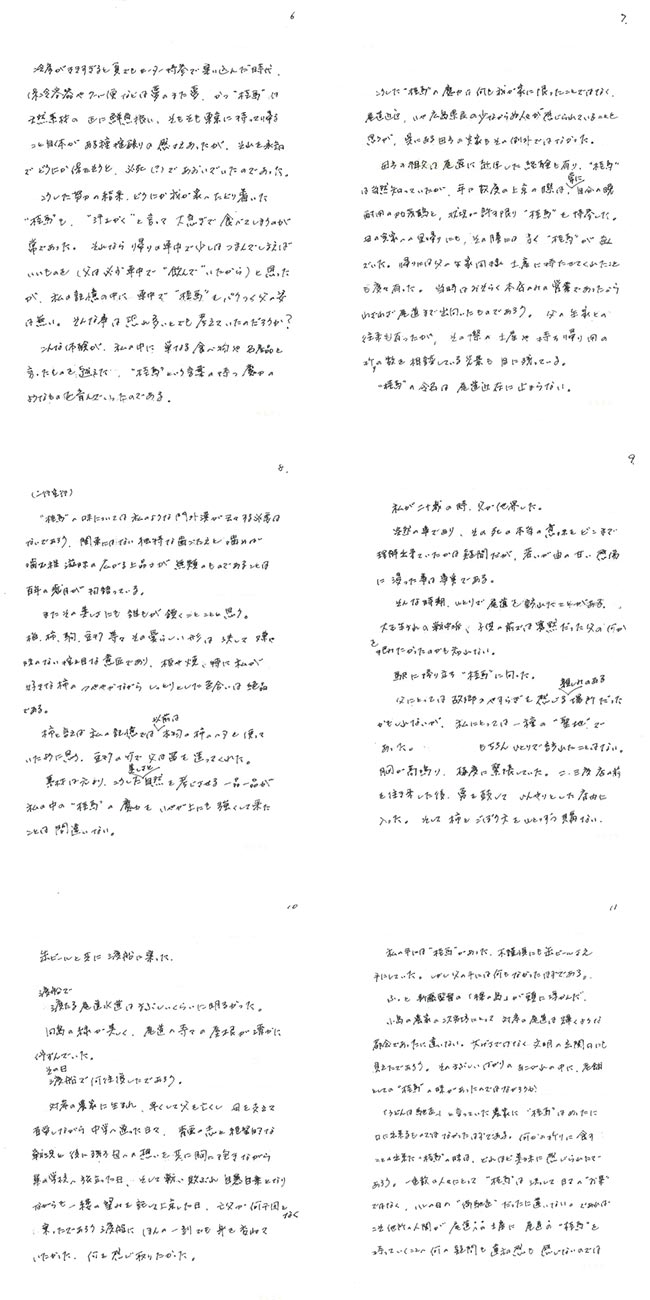 6
冷房がききすぎると夏でもセーター持参で乗り込んだ時代、
保冷容器やクール便などは夢のまた夢、かつ"桂馬"は
天然素材の
こと自体がある種
でどうにか
こうした努力の結果、どうにか我が家へたどり着いた
"桂馬"も、 と言って大急ぎで食べてしまうのが
常であった。それなら帰りの車中で少しはつまんでしまえば
いいものを(父は必ず車中で"飲んで"いたから)と思った
が、私の記憶の中に車中で"桂馬"をパクつく父の姿
は無い。そんな事は恐れ多いとでも考えていたのだろうか?
こんな体験が、私の中に単なる食べ物や名産品と
言ったものを超えた、"桂馬"という言葉の持つ魔力の
ようなものを育んでいったのである。
7.
こうした"桂馬"の魔力は何も我が家に限ったことではなく、
尾道近辺、いや広島県民の少なからぬ人々が感じられていることと
思うが、呉にある母方の実家もその例外ではなかった。
母方の祖父は尾道に 経験も有り、"桂馬"
は当然知っていたが、年に数度の上京の際は、常に自分の晩
酌用の と、状況が許す限り"桂馬"を持参した。
母の実家への里帰りにも、その膳には良く"桂馬"が並ん
でいた。帰りには父の生家同様土産に持たせてくれたこと
も度々有った。当時はおそらく本店のみの営業であったろう
わざわざ尾道まで出向いたものであろう。父の生家との
往来も有ったが、その際の土産や持ち帰り用の
の数を相談している光景も目に残っている。
"桂馬"の令名は尾道近在に止まらない。
8.
"桂馬"の味については私のような門外漢が云々する必要は
ないであろう、関東にはない独特な歯ごたえと噛めば
噛む程滋味の広がる上品さが無類のものであることは
百年の歳月が物語っている。
またその美しさにも誰もが驚くことと思う。
梅、柿、駒、豆等々その愛らしい形は決して嫌
味のない洒脱な意匠であり、 特に私が
好きな柿のつややかながらしっとりとした色合いは絶品
である。
柿と言えば私の記憶では以前は本物の柿のヘタを使って
いたように思う、豆の で父は笛を造ってくれた。
素材は元より、こうした美しさと自然を感じさせる一品一品が
私の中の"桂馬"の魔力をいやが上にも強くして来た
ことは間違いない。
9.
私が二十歳の時、父が他界した。
当然の事であり、その死の本当の意味をどこまで
理解出来ていたかは疑問だが、若いが由の甘い感傷
に浸った事は事実である。
そんな時期、ひとりで尾道を訪ねたことがある。
大正生まれの戦中派、子供の前では寡黙だった父の何か
を知りたかったのかも知れない。
駅に降り立ち"桂馬"に向った。
父にとっては故郷のやすらぎを感じる親しみのある場所だった
かもしれないが、私にとっては一種の"聖地"で
あった。 もちろんひとりで訪れたことはない。
胸が高鳴り、極度に緊張していた。二、三度店の前
を往き来した後、勇を鼓してひんやりとした店内に
入った。そして柿とごぼう天をひとつずつ購ない、
10
缶ビールと共に渡船に乗った。
渡船で
渡る尾道水道はまぶしいくらいに明るかった。
向島の緑が美しく、尾道の寺々の屋根が静かに
佇ずんでいた。
その日
渡船で何往復したであろう。
対岸の農家に生まれ、早くして父を亡くし母を支えて
苦学しながら中学へ通った日々、青雲の志と絶望的な
戦況と後に残る母への想いを共に胸に抱きながら
の学校へ旅立った日、そして戦い敗ぶれ自暴自棄となり
ながらも一縷の望みを託して上京した日、亡父が何千回と
なく
乗ったであろう渡船にほんの一刻でも身を委ねて
いたかった、何かを感じ取りたかった。
11
私の手には"桂馬"があった、不謹慎にも缶ビールさえ
手にしていた。しかし父の手には何もなかったはずである。
ふっと新藤監督の「裸の島」が頭に浮かんだ。
小島の農家の次男坊にとって対岸の尾道は輝くような
都会であったに違いない。大げさではなく文明の玄関口にも
見えたであろう。そのまぶしいばかりのあこがれの中に、尾道
としての"桂馬"の味があったのではなかろうか
「うどんは馳走」と言っていた農家に"桂馬"はめったに
口に出来るものではなかったはずである。何かの折りに食す
ことの出来た"桂馬"の味は、どれほど美味に感じられたで
あろう。一般の人々にとって"桂馬"は決して日々の"お菜"
ではなく、ハレの日の"御馳走"だったに違いない。であれば
こそ他所の人間が尾道への土産に尾道の"桂馬"を
持っていくことへ何の疑問も違和感も感じないのでは